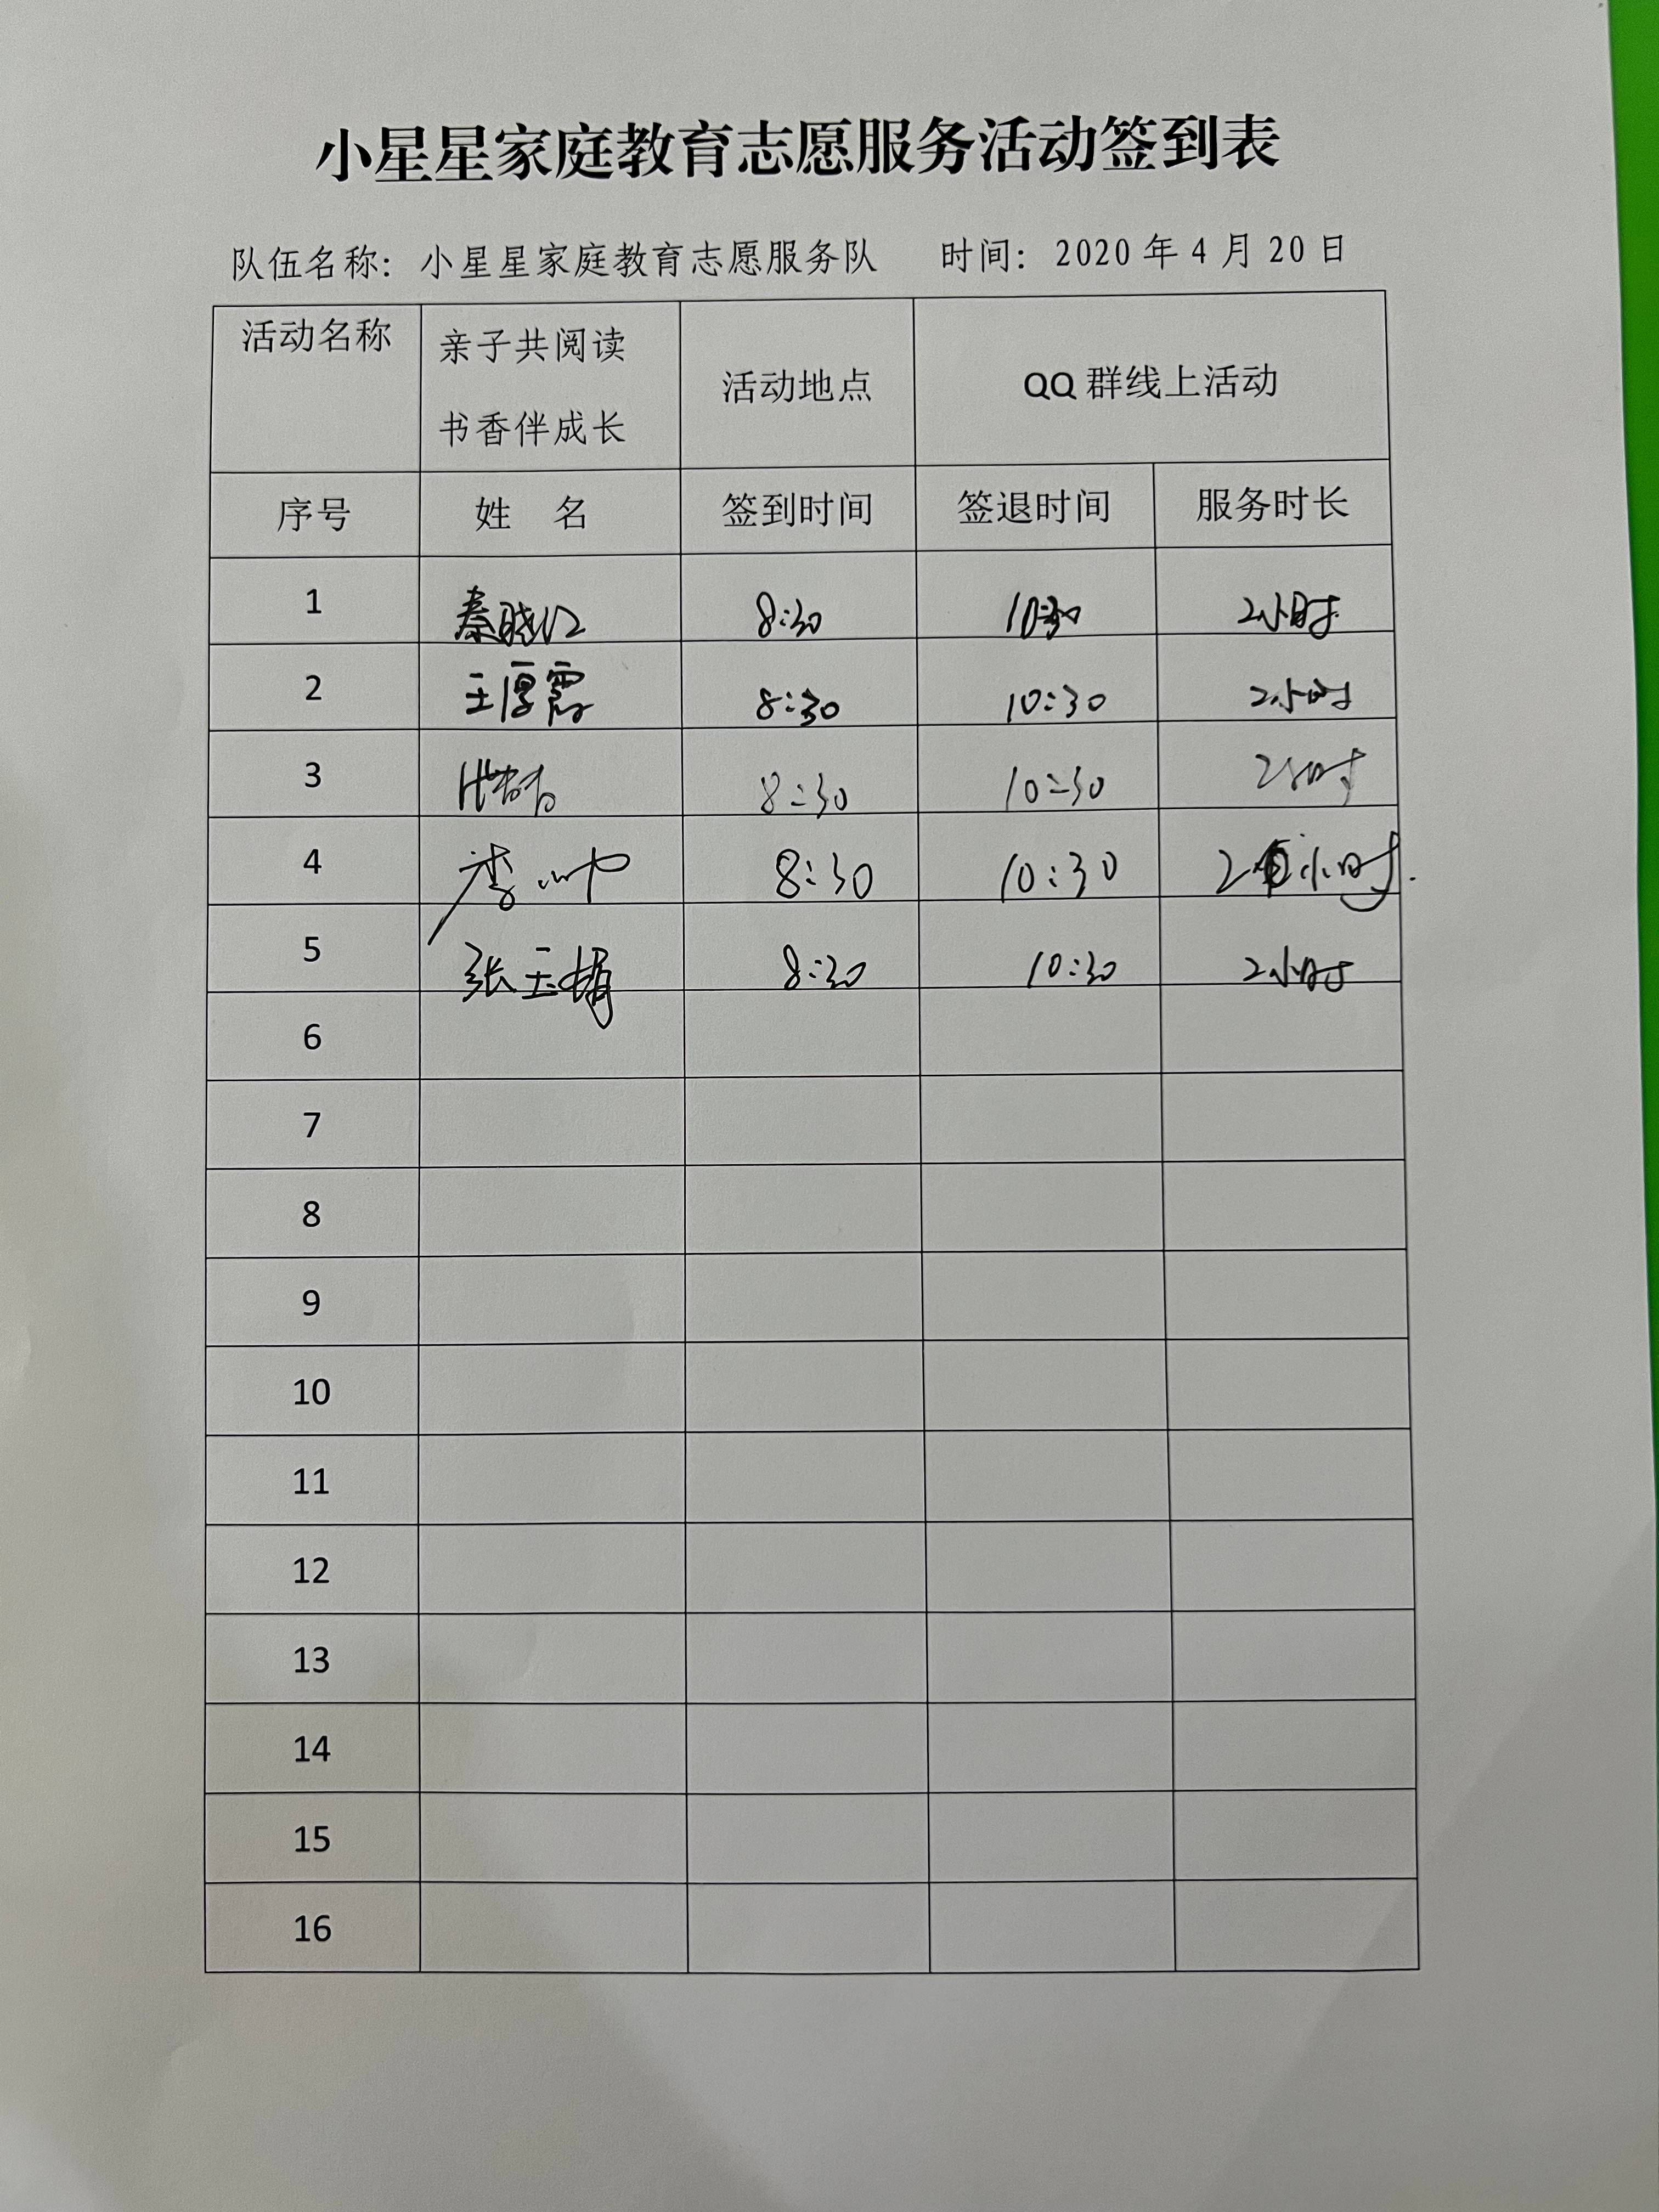 小星星家庭教育志愿服务活动签到表
队伍名称：小星星家庭教育志愿服务队 时间：2020年4月20日
活动名称 亲子共阅读 书香伴成长 活动地点 QQ群线上活动
序号 姓 名 签到时间 签退时间 服务时长
1 秦晓江 8:30 10:30 2小时
2 王厚霞 8:30 10:30 2小时
3 8:30 10:30 2小时
4 李 8:30 10:30 2小时.
5 张玉梅 8:30 10:30 2小时
6
7
8
9
10
11
12
13
14
15
16